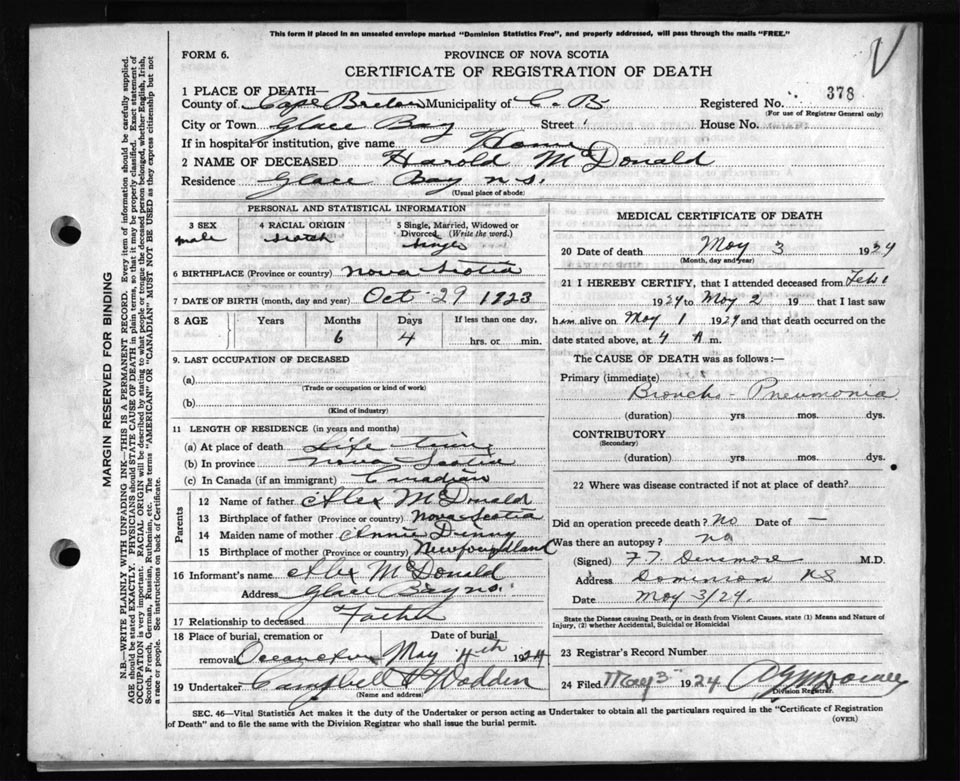 This form if placed in an unsealed envelope marked "Dominion Statistics Free", and properly addressed, will pass through the mails "FREE."
V
FORM 6.
PROVINCE OF NOVA SCOTIA
CERTIFICATE OF REGISTRATION OF DEATH
1 PLACE OF DEATH—
County of Cape Breton Municipality of C. B. Registered No. 378
(For use of Registrar General only)
City or Town Glace Bay Street House No.
If in hospital or institution, give name Home
2 NAME OF DECEASED Harold McDonald
Residence Glace Bay N S.
(Usual place of abode)
PERSONAL AND STATISTICAL INFORMATION
3 SEX 4 RACIAL ORIGIN 5 Single, Married, Widowed or Divorced (Write the word.)
male Scotch Single
6 BIRTHPLACE (Province or country) Nova Scotia
7 DATE OF BIRTH (month, day and year) Oct 29 1923
8 AGE Years Months Days If less than one day,
6 4 hrs. or min.
9. LAST OCCUPATION OF DECEASED
(a)
(Trade or occupation or kind of work)
(b)
(Kind of industry)
11 LENGTH OF RESIDENCE (in years and months)
(a) At place of death Life time
(b) In province Nova Scotia
(c) In Canada (if an immigrant) Canadian
Parents
12 Name of father Alex McDonald
13 Birthplace of father (Province or country) Nova Scotia
14 Maiden name of mother Annie
15 Birthplace of mother (Province or country) Newfoundland
16 Informant's name Alex McDonald
Address Glace Bay
17 Relationship to deceased Father
18 Place of burial, cremation or removal Date of burial
May 4th 1924
19 Undertaker Campbell & Wadden
(Name and address)
MEDICAL CERTIFICATE OF DEATH
20 Date of death May 3 1924
(Month, day and year)
21 I HEREBY CERTIFY, that I attended deceased from Feb 1
1924 to May 2 19 that I last saw
him alive on May 1 1924 and that death occurred on the
date stated above, at 4 A m.
The CAUSE OF DEATH was as follows:—
Primary (immediate)
Broncho - Pneumonia
(duration) yrs mos. dys.
CONTRIBUTORY
(Secondary)
(duration) yrs. mos. dys.
22 Where was disease contracted if not at place of death?
Did an operation precede death? No Date of —
Was there an autopsy? no
(Signed) M.D.
Address Dominion NS
Date May 3/24.
State the Disease causing Death, or in death from Violent Causes, state (1) Means and Nature of Injury, (2) whether Accidental, Suicidal or Homicidal
23 Registrar's Record Number
24 Filed May 3 1924
Division Registrar.
SEC. 46—Vital Statistics Act makes it the duty of the Undertaker or person acting as Undertaker to obtain all the particulars required in the "Certificate of Registration of Death" and to file the same with the Division Registrar who shall issue the burial permit.
(OVER)
MARGIN RESERVED FOR BINDING
N.B.—WRITE PLAINLY WITH UNFADING INK—THIS IS A PERMANENT RECORD. Every item of information should be carefully supplied.
AGE should be stated EXACTLY. PHYSICIANS should STATE CAUSE OF DEATH in plain terms, so that it may be properly classified. Exact statement of
OCCUPATION is very important. RACIAL ORIGIN will be described by stating to what people or tongue the deceased person belonged, whether English, Irish,
Scotch, French, German, Russian, Ruthenian, etc. The terms "AMERICAN" OR "CANADIAN" MUST NOT BE USED as they express citizenship but not
a race or people. See instructions on back of Certificate.